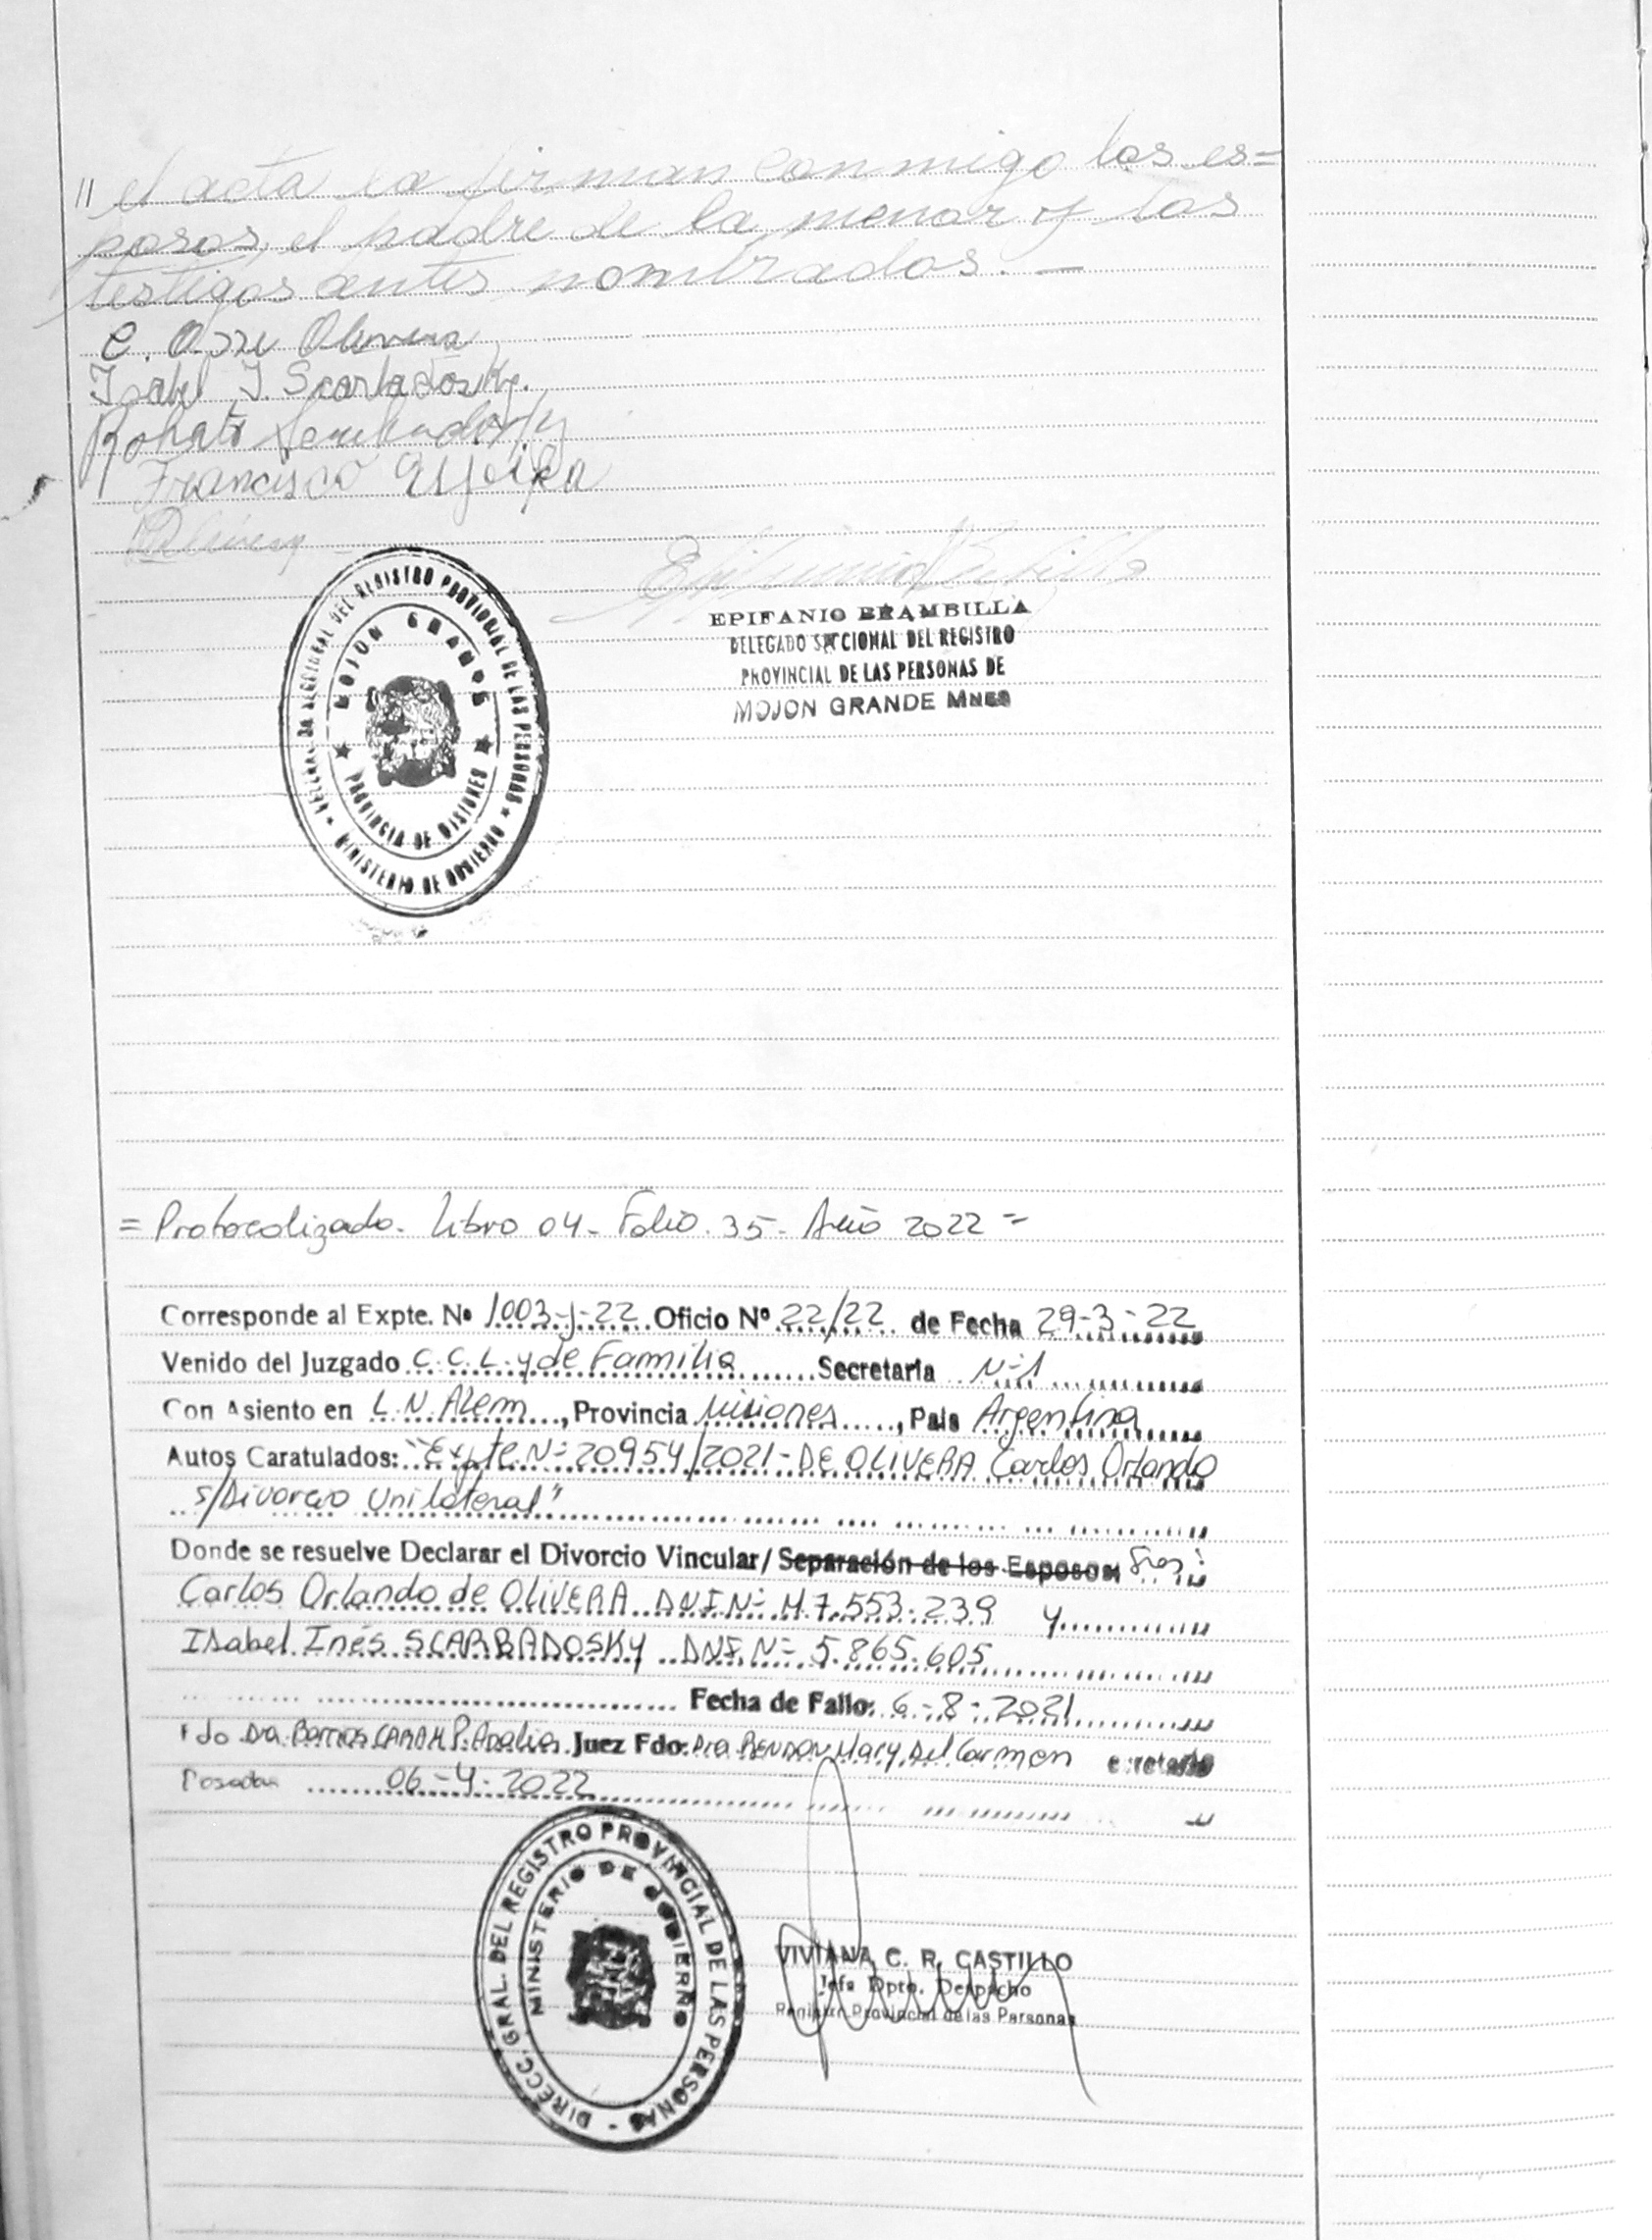 " el acta la firman conmigo los es=
posos, el padre de la menor y los
testigos antes nombrados. —
C. Orl Olivera
Isabel I. Scarbadosky.
Francisco
Olivera
DEL REGISTRO PROVINCIAL DE LAS PERSONAS
MOJON GRANDE
PROVINCIA DE MISIONES
MINISTERIO DE GOBIERNO
EPIFANIO BRAMBILLA
DELEGADO SECCIONAL DEL REGISTRO
PROVINCIAL DE LAS PERSONAS DE
MOJON GRANDE MNES
= Protocolizado. Libro 04 - Folio. 35 - Año 2022 =
Corresponde al Expte. Nº 1003-J-22 Oficio Nº 22/22 de Fecha 29-3-22
Venido del Juzgado C.C.L. y de Familia Secretaria Nº 1
Con Asiento en L.N. Alem, Provincia Misiones, Pais Argentina
Autos Caratulados: "Expte. Nº 20954/2021 - DE OLIVERA Carlos Orlando
s/Divorcio Unilateral"
Donde se resuelve Declarar el Divorcio Vincular/ Separación de los Esposos: Sres:
Carlos Orlando de OLIVERA DNI Nº M 7.553.239 y
Isabel Inés SCARBADOSKY DNI. Nº 5.865.605
Fecha de Fallo: 6-8-2021
Fdo Dra. Barrios CARAM P. Analia Juez Fdo: Dra RENDON Mary Del Carmen ecretaria
Posadas 06-4-2022
DIRECC. GRAL. DEL REGISTRO PROVINCIAL DE LAS PERSONAS
MINISTERIO DE GOBIERNO
VIVIANA C. R. CASTILLO
Jefa Dpto. Despacho
Registro Provincial de las Personas